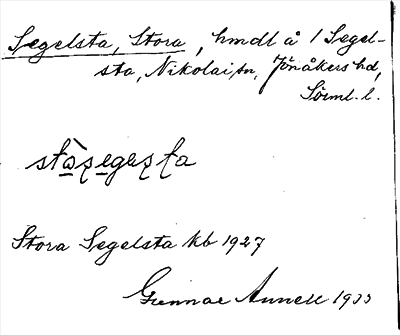 Segelsta, Stora, hmdl å 1 Segel-
sta, Nikolai sn, Jönåkers hd,
Sörml. l.
Stora Segelsta kb 1927
Gunnar Annell 1933